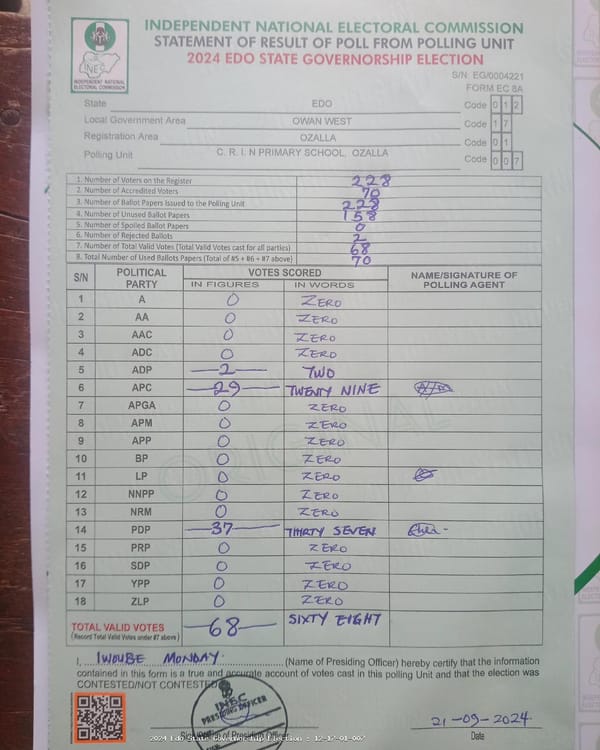 INDEPENDENT NATIONAL ELECTORAL COMMISSION
STATEMENT OF RESULT OF POLL FROM POLLING UNIT
2024 EDO STATE GOVERNORSHIP ELECTION
INEC
INDEPENDENT NATIONAL ELECTORAL COMMISSION
S/N: EG/0004221
FORM EC 8A
State EDO Code 0 1 2
Local Government Area OWAN WEST Code 1 7
Registration Area OZALLA Code 0 1
Polling Unit C. R. I. N PRIMARY SCHOOL, OZALLA Code 0 0 7
1. Number of Voters on the Register 228
2. Number of Accredited Voters 70
3. Number of Ballot Papers Issued to the Polling Unit 228
4. Number of Unused Ballot Papers 158
5. Number of Spoiled Ballot Papers 0
6. Number of Rejected Ballots 2
7. Number of Total Valid Votes (Total Valid Votes cast for all parties) 68
8. Total Number of Used Ballots Papers (Total of #5 + #6 + #7 above) 70
S/N POLITICAL PARTY VOTES SCORED NAME/SIGNATURE OF POLLING AGENT
IN FIGURES IN WORDS
1 A 0 ZERO
2 AA 0 ZERO
3 AAC 0 ZERO
4 ADC 0 ZERO
5 ADP 2 TWO
6 APC 29 TWENTY NINE
7 APGA 0 ZERO
8 APM 0 ZERO
9 APP 0 ZERO
10 BP 0 ZERO
11 LP 0 ZERO
12 NNPP 0 ZERO
13 NRM 0 ZERO
14 PDP 37 THIRTY SEVEN
15 PRP 0 ZERO
16 SDP 0 ZERO
17 YPP 0 ZERO
18 ZLP 0 ZERO
TOTAL VALID VOTES 68 SIXTY EIGHT
(Record Total Valid Votes under #7 above)
ORIGINAL
I, IWOUBE MONDAY (Name of Presiding Officer) hereby certify that the information
contained in this form is a true and accurate account of votes cast in this polling Unit and that the election was
CONTESTED/NOT CONTESTED
INEC
PRESIDING OFFICER
21-09-2024
Date
2024 Edo State Governorship Election : 12-17-01-007